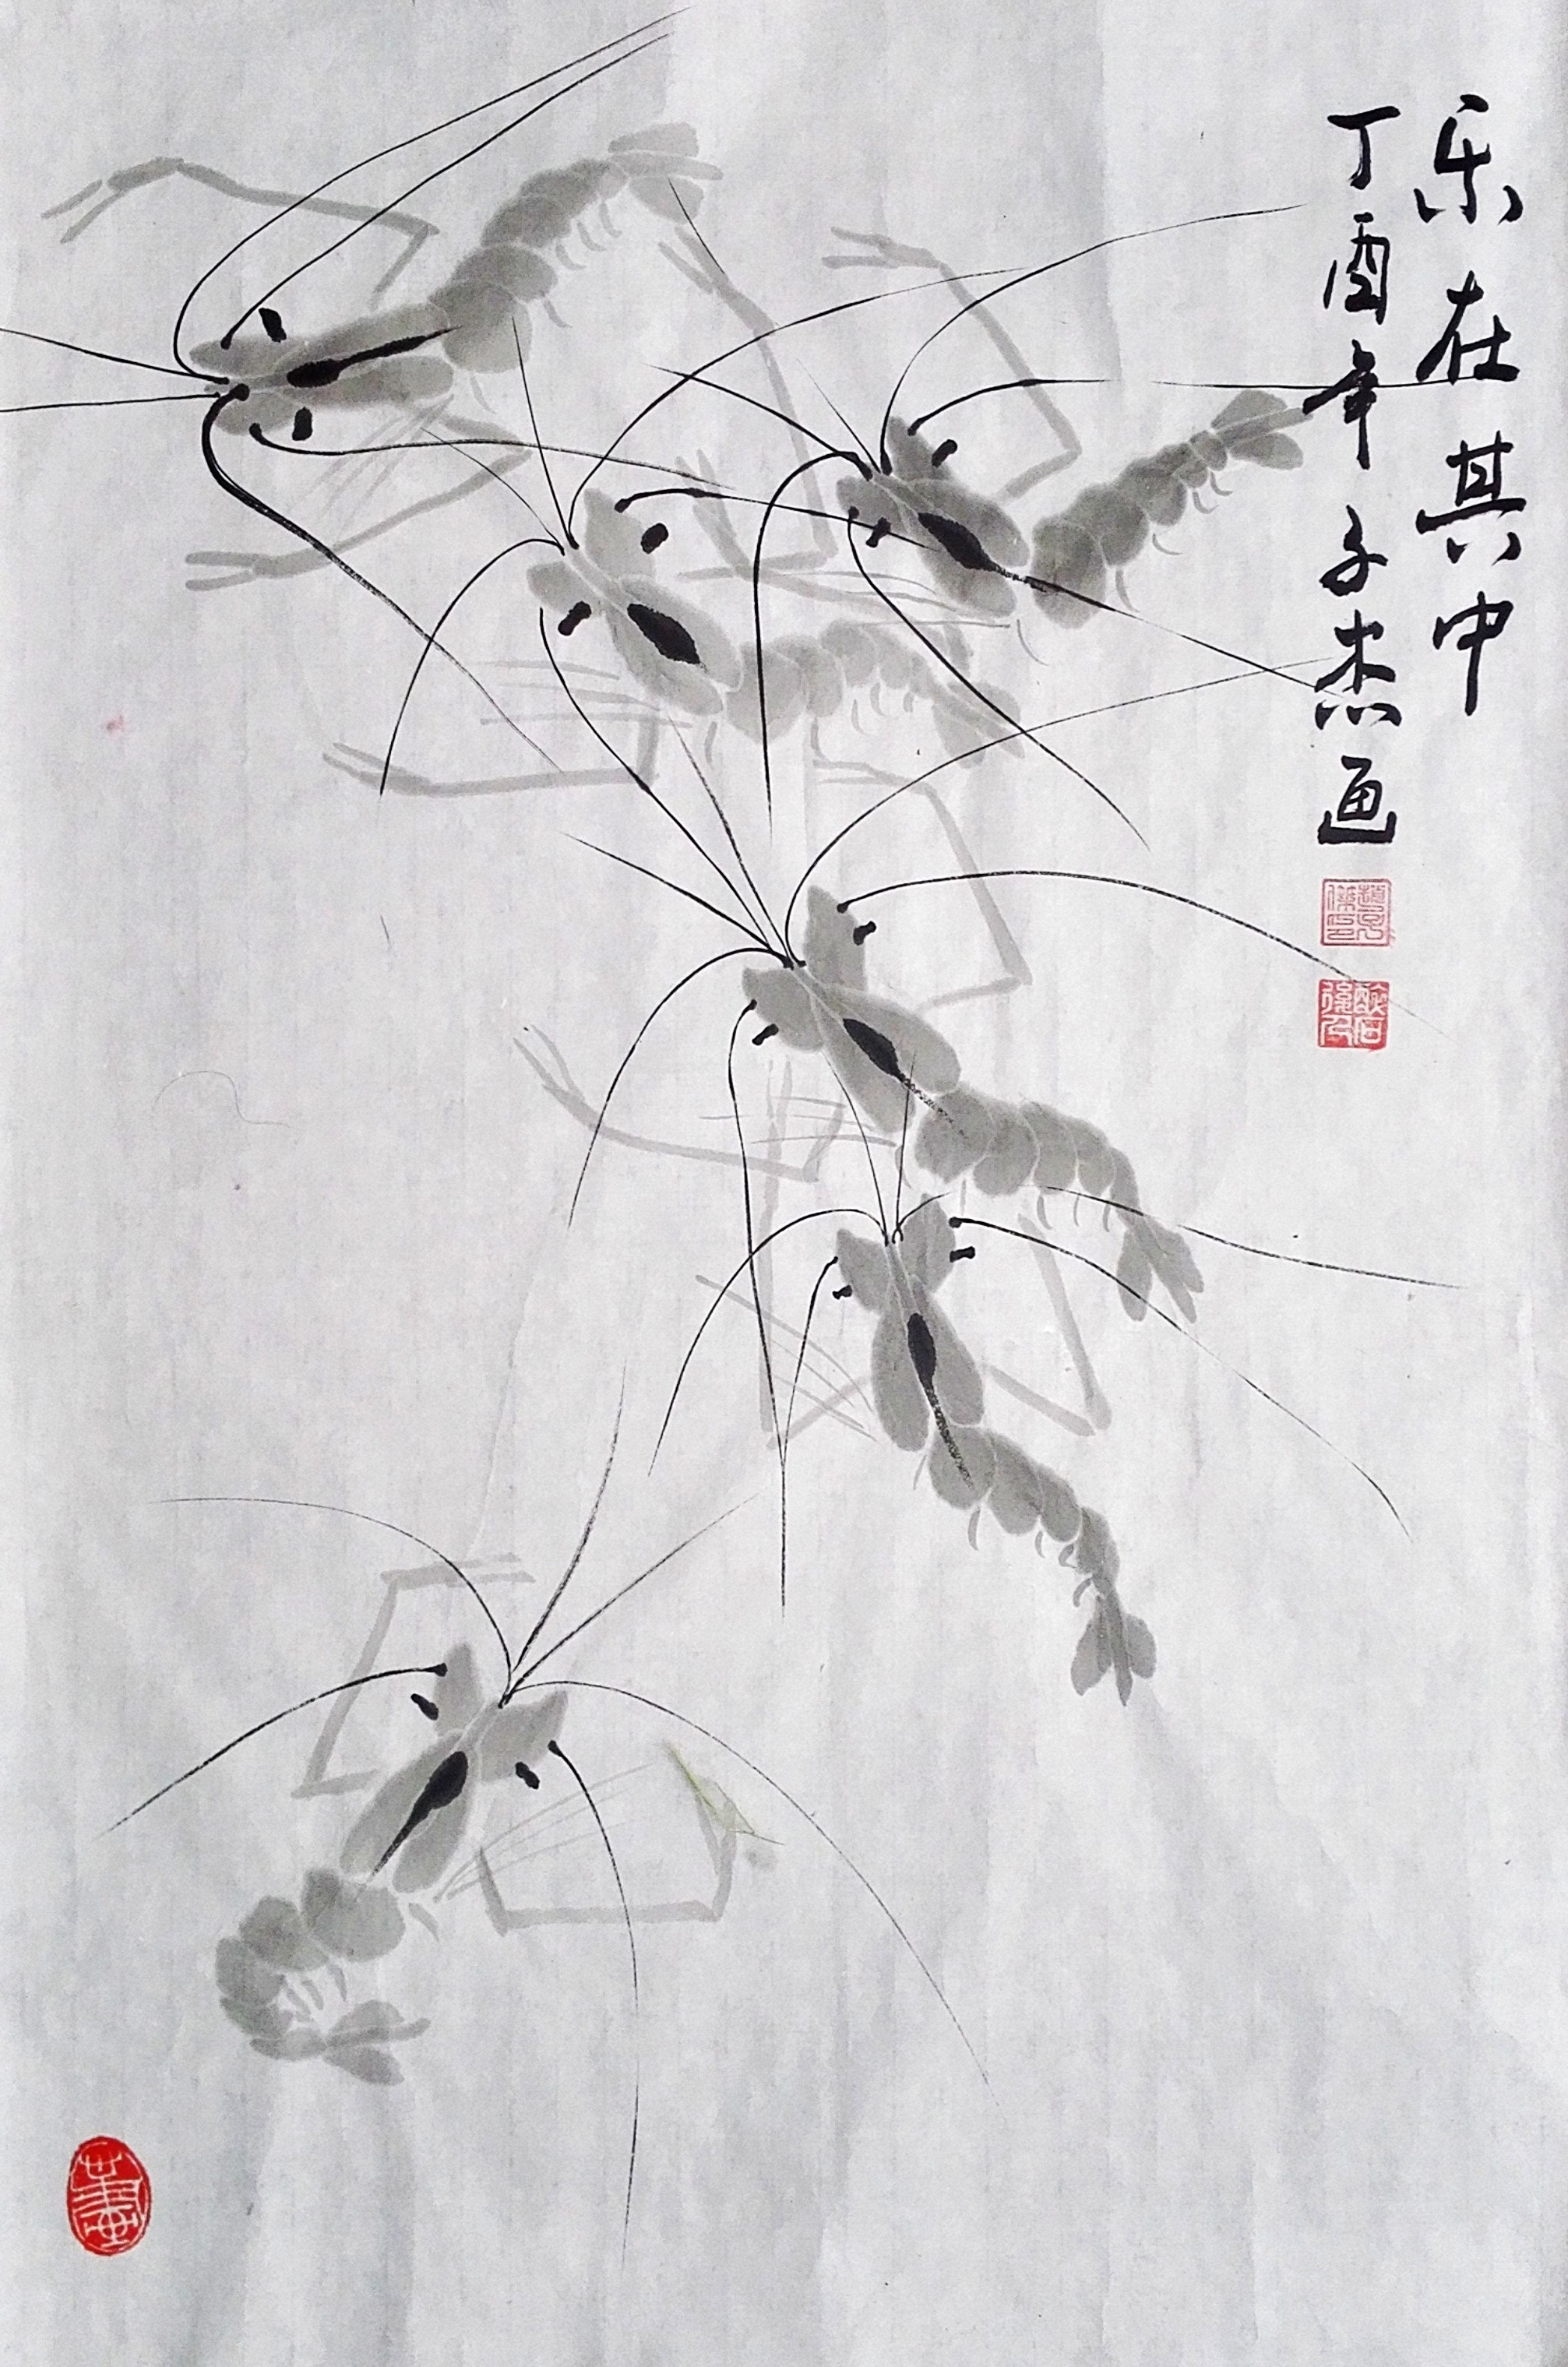 乐在其中
丁酉年子杰画